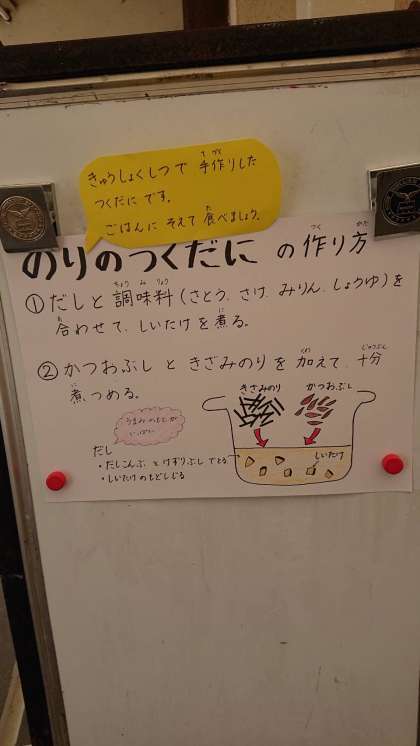 きゅうしょくしつで 手作りした
つくだにです。
ごはんに そえて 食べましょう。
のりのつくだに の作り方
①だしと 調味料(さとう、さけ、みりん、しょうゆ)を
合わせて、しいたけを煮る。
②かつおぶしと きざみのりを 加えて、十分
煮つめる。
きざみのり かつおぶし
うまみのもとが
いっぱい
だし
・だしこんぶ と けずりぶしでとる
・しいたけのもどしじる
しいたけ